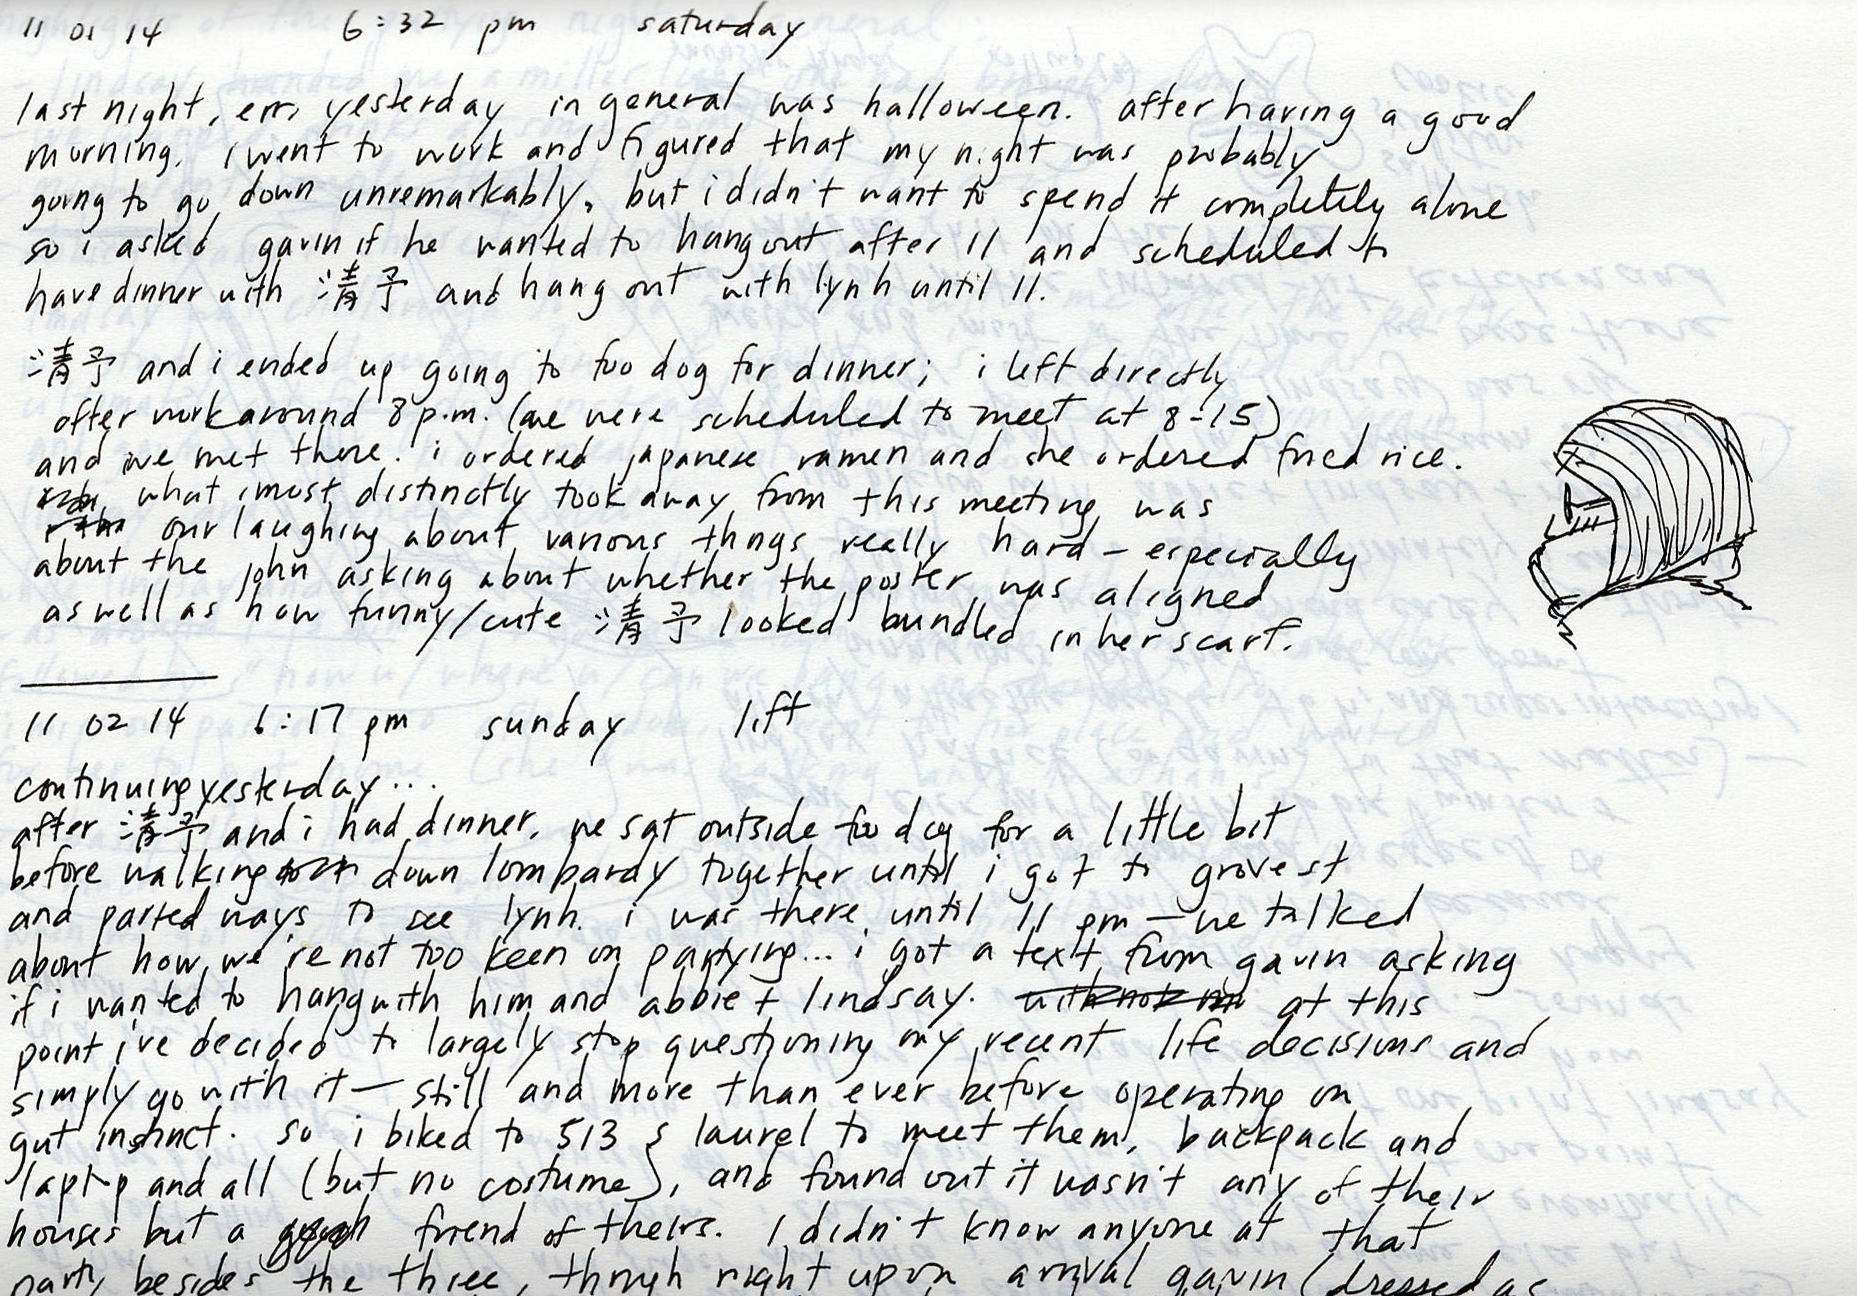 11 01 14 6:32 pm saturday
last night, err, yesterday in general was halloween. after having a good
morning, i went to work and figured that my night was probably
going to go down unremarkably, but i didn't want to spend it completely alone
so i asked gavin if he wanted to hang out after 11 and scheduled to
have dinner with 清予 and hang out with lynh until 11.
清予 and i ended up going to foo dog for dinner; i left directly
after work around 8 p.m. (we were scheduled to meet at 8-15)
and we met there. i ordered japanese ramen and she ordered fried rice.
what i most distinctly took away from this meeting was
our laughing about various things really hard – especially
about the john asking about whether the poster was aligned
as well as how funny/cute 清予 looked bundled in her scarf.
11 02 14 6:17 pm sunday lift
continuing yesterday...
after 清予 and i had dinner, we sat outside foo dog for a little bit
before walking down lombardy together until i got to grove st
and parted ways to see lynh. i was there until 11 pm — we talked
about how we're not too keen on partying... i got a text from gavin asking
if i wanted to hang with him and abbie + lindsay. at this
point i've decided to largely stop questioning my recent life decisions and
simply go with it — still and more than ever before operating on
gut instinct. so i biked to 513 s laurel to meet them, backpack and
laptop and all (but no costume), and found out it wasn't any of their
houses but a friend of theirs. I didn't know anyone at that
party besides the three, though right upon arrival gavin (dressed as